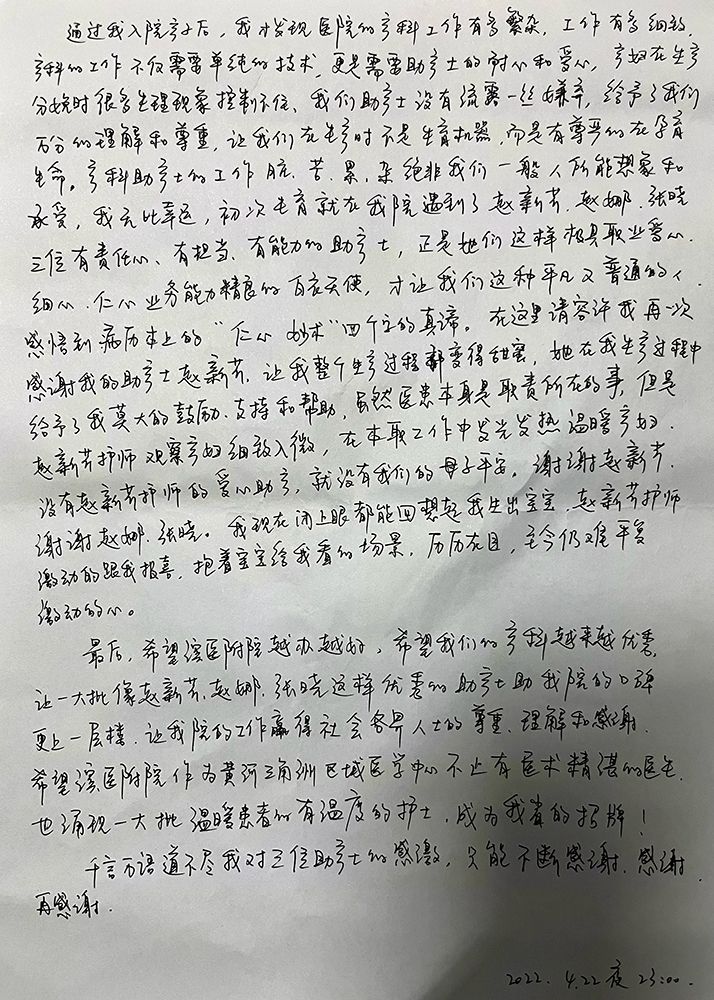 通过我入院产子后，我才发现医院的产科工作有多繁杂，工作有多细致，
产科的工作不仅需要单纯的技术，更是需要助产士的耐心和爱心，产妇在生产
分娩时很多生理现象控制不住，我们助产士没有流露一丝嫌弃，给予了我们
百分的理解和尊重，让我们在生产时不是生育机器，而是有尊严的在孕育
生命。产科助产士的工作脏、苦、累、杂绝非我们一般人所能想象和
承受，我无比幸运，初次生育就在我院遇到了赵新芳、赵娜、张晓
三位有责任心、有担当、有能力的助产士，正是她们这样极具职业爱心、
细心、仁心业务能力精良的白衣天使，才让我们这种平凡又普通的人
感悟到病历本上的“仁心妙术”四个字的真谛。在这里请容许我再一次
感谢我的助产士赵新芳，让我整个生产过程都变得甜蜜，她在我生产过程中
给予了我莫大的鼓励、支持和帮助，虽然医患本身是职责所在的事，但是
赵新芳护师观察产妇细致入微，在本职工作中发光发热温暖产妇，
没有赵新芳护师的爱心助产，就没有我们的母子平安。谢谢赵新芳，
谢谢赵娜、张晓。我现在闭上眼都能回想起我生出宝宝，赵新芳护师
激动的跟我报喜，抱着宝宝给我看的场景，历历在目，至今仍难平复
激动的心。
最后，希望滨医附院越办越好，希望我们的产科越来越优秀，
让一大批像赵新芳、赵娜、张晓这样优秀的助产士助我院的口碑
更上一层楼，让我院的工作赢得社会各界人士的尊重、理解和感谢，
希望滨医附院作为黄河三角洲区域医学中心不止有医术精湛的医生，
也涌现一大批温暖患者的有温度的护士，成为我省的招牌！
千言万语道不尽我对三位助产士的感激，只能不断感谢、感谢、
再感谢.
2022. 4.22 夜 23:00.